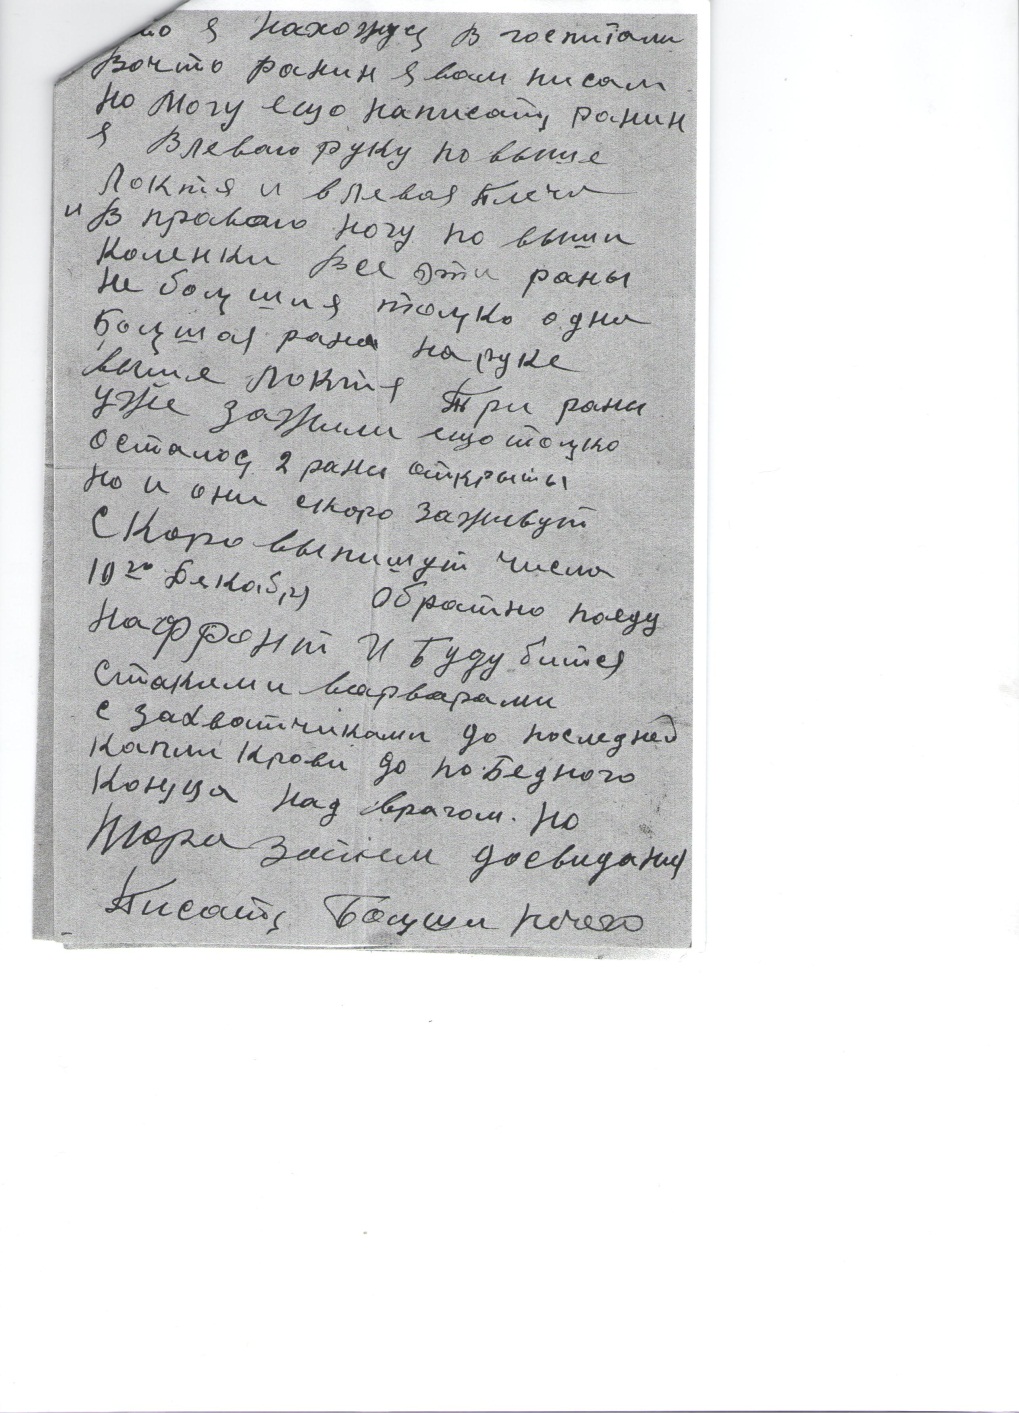 я нахожус в госпитали
Вочто ранин я вам писал
Но Могу ещо написать ранин
я Влеваю руку по выше
Локтя и в левая плечо
и В праваю ногу по выши
Коленки Все эти раны
Не болшия толко одна
Болшая рана на руке
выше локтя Три раны
уже зажили ещо толко
осталос 2 раны открыты
но и они скоро заживут
Скоро выпишут числа
10го Декабря Обратно поеду
На фронт И Буду битса
Стакими варварами
с захватчиками до последней
капли Крови до поБедного
Конца Над врагом. Но
затем досвидания
Писать Болши нечего